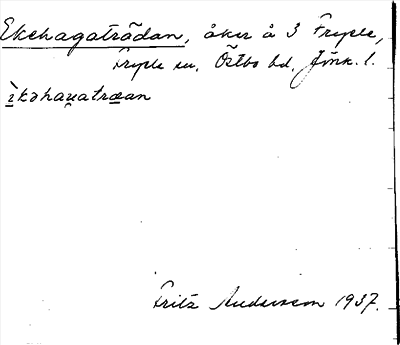 Ekehagaträdan, åker å 3 Fryele,
Fryele sn. Östbo hd. Jönk. l.
ìkəhaɰatræan
Fritz Andersson 1937.